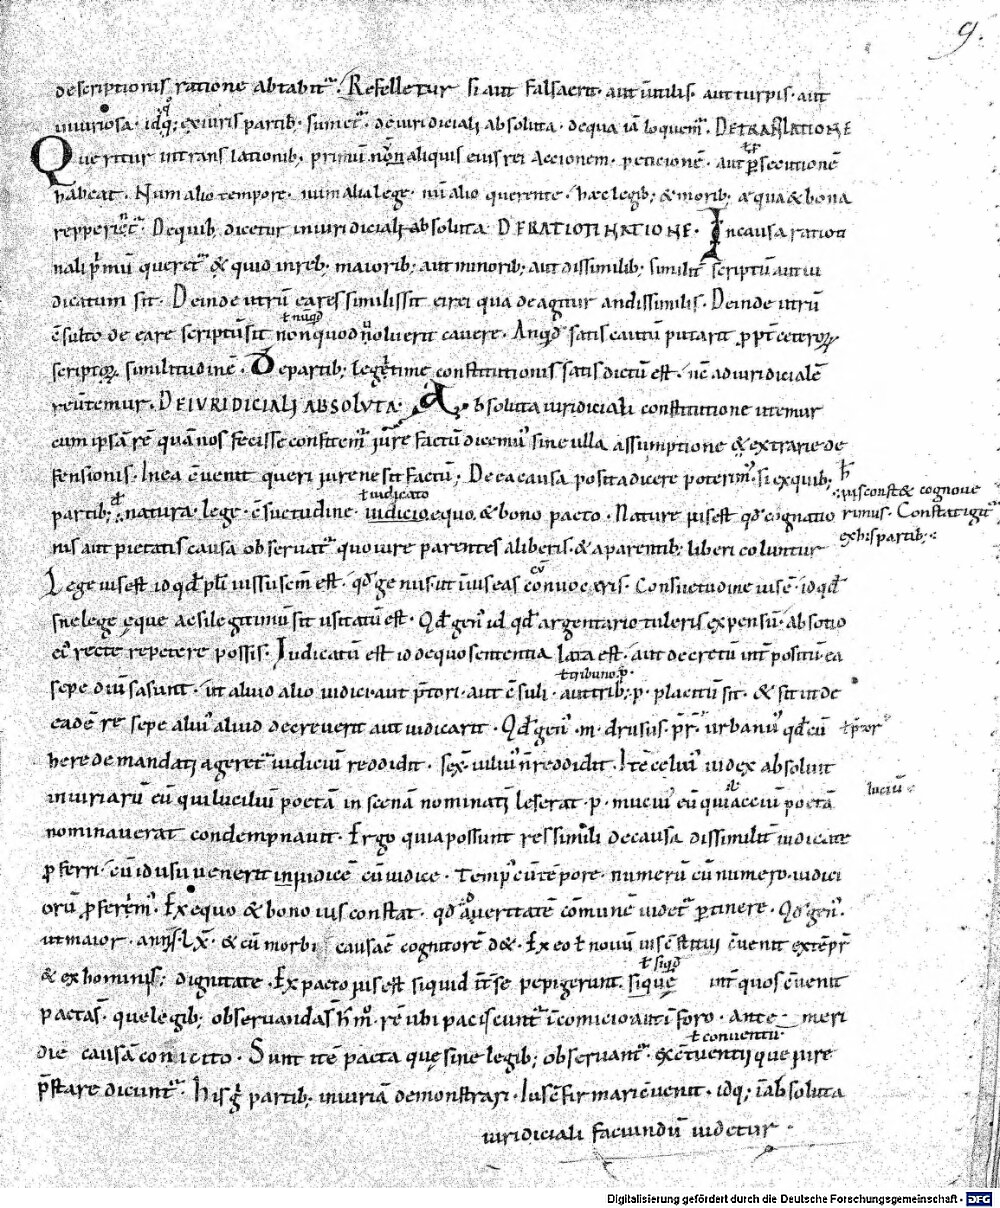 9.
descriptionis ratione abtabit̃. Refelletur si aut falsaerit. aut ūtilis. aut turpis. aut
iniuriosa. idq; exiuris partib; sumet̃. deiuridiciali absoluta. dequa iā loquem̃. DETRANSLATIONE
Queritur intranslationib; primū nōn aliquis eius rei Accionem. peticionē. aut p̱secutionē
habeat. Num alio tempore. num alia lege. nū alio querente. haec legib; & morib; aequa & bona
repperiet̃. Dequib; dicetur iniuridiciali absoluta. DERATIOTINATIONE. Incausa ratioti
nali p̄mū queret̃ & quid inreb; maiorib; aut minorib; aut dissimilib; similit̄ scriptū aut iu
dicatum sit. Deinde utrū eares similis sit eirei qua deagitur andissimilis. Deinde utrū
c̄sulto de eare scriptū sit non quod noluerit cavere. Anqd̄ satis cautū putarit ppt̄ ceteroꝝ
scriptoꝝ similitudinē. Departib; legitime constitutionis satis dictū est. nē adiuridicialē
reūtemur. DEIVRIDICIALI ABSOLVTA. Absoluta iuridiciali constitutione utemur
cum ipsā rē quā nos fecisse confitem̃ iure factū dicemꝰ sine ulla assumptione & extrarie de
fensionis. Inea c̄venit queri iurene sit factū; Deea causa posita dicere poterim̃. si exquib;
partib; natura. lege. c̄suetudine. iudicio. equo. & bono pacto. Nature ius est qd̄ cognatio
ꝉ iudicato
ius const& cognove
rimus. Constat igit̃
exhis partib;
nis aut pietatis causa observat̃ quo iure parentes aliberis. & aparentib; liberi coluntur
Lege ius est id qd̄ pl̄i iussu scm̄ est. qd̄ genus. ut iniuseas cōnvoceris. Consuetudine ius ē. id qd̄
sine lege eque ac si legitimū sit usitatū est. Qd̄ genꝰ id qd̄ argentario tuleris expensū. absotio
eiꝰ recte repetere possis. Iudicatū est id dequo sententia lata est. aut decretū int̄positū ea
sepe divsasunt. ut aliud alio iudici aut p̄tori. aut c̄suli. aut trib; p. placitū sit. & sit inde
ꝉ tribuno.p.
eadē re sepe aliuꝰ aliud decreverit aut iudicarit. Qd̄ genꝰ. m. drusus. p̄r. urbanuꝰ qd̄ cū
ꝉ p̄tor
herede mandati ageret̃ iudiciū reddidit. sex. iuliuꝰ n̄ reddidit. Itē celiuꝰ iudex absoluit
iniuriarū eū qui luciliū poetā in scenā nominati leserat. p. muciuꝰ eū qui acciū poetā
luciū
nominaverat condempnavit. Ergo quia possunt res simili decausa dissimilit̄ iudicate
p̱ferri. cū id usu venerit iniudicē cū iudice. tempꝰ cū tēpore. numerū cū numero. iudici
orū p̱ferem̃. Ex equo & bono ius constat. qd̄ adveritatē cōmunē videt̃ p̱tinere. Qd̄ genꝰ.
ut maior. annis. LX. & cū morbi causaē cognitorē d&. Ex eo ꝉ novū ius c̄stitui c̄venit extēpr̄
& ex hominis; dignitate. Ex pacto ius est siquid int̄ se pepigerunt. sique int̄ quos c̄venit
ꝉ siqd̄
pactas. que legib; observandas̄ hm̊. rē ubi paciscunt̃ ī comicio aut ī foro. Ante meri
die causā conicito. Sunt itē pacta quę sine legib; observant̃. exc̄tventii que iure
ꝉ conventū
p̄stare dicunt̃. His g̊ partib; iniuriā demonstrari. Ius c̄firmari c̄venit. idq; īabsoluta
iuridiciali faciundū videtur.
Digitalisierung gefördert durch die Deutsche Forschungsgemeinschaft - DFG